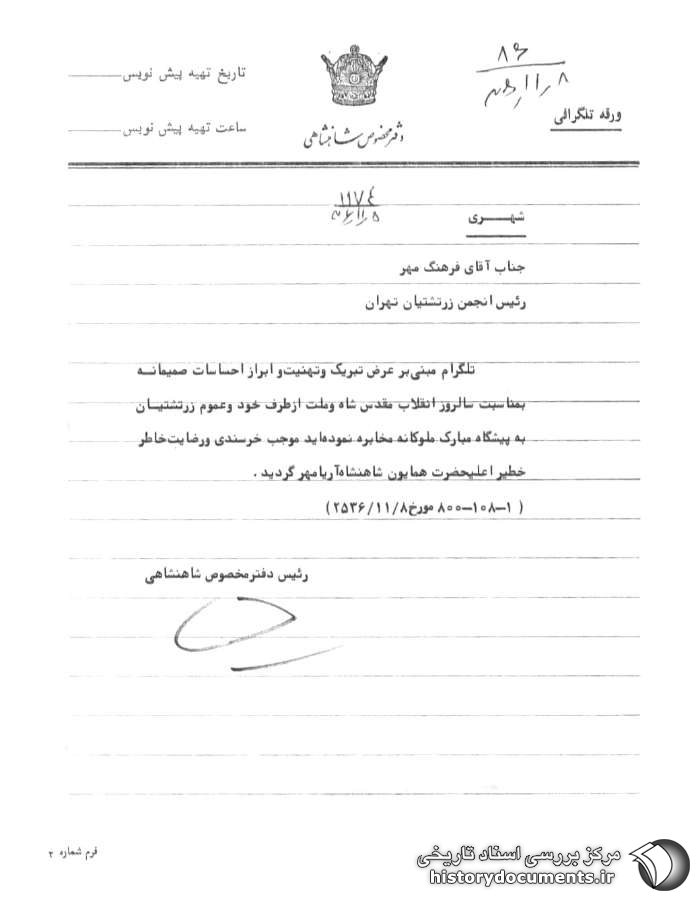 تاریخ تهیه پیش نویس
ساعت تهیه پیش نویس
دفتر مخصوص شاهنشاهی
۸۶
ورقه تلگرافی
۱۱۷۴
شهـــری
جناب آقای فرهنگ مهر
رئیس انجمن زرتشتیان تهران
تلگرام مبنی‌بر عرض تبریک وتهنیت‌و ابراز احساسات صمیمانـه
بمناسبت سالروز انقلاب مقدس شاه وملت ازطرف خود وعموم زرتشتیـان
به پیشگاه مبارک ملوکانه مخابره نموده‌اید موجب خرسندی ورضایت‌خاطر
خطیر اعلیحضرت همایون شاهنشاه‌آریامهر گردید .
( ۱–۱۰۸–۸۰۰ مورخ۲۵۳۶/۱۱/۸ )
رئیس دفترمخصوص شاهنشاهی
فرم شماره ۲
مرکز بررسی اسناد تاریخی
historydocuments.ir